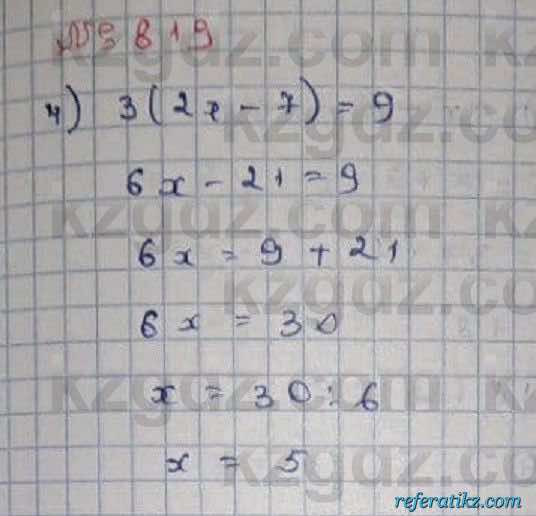 № 819
4) 3(2x - 7) = 9
6x - 21 = 9
6x = 9 + 21
6x = 30
x = 30 : 6
x = 5
kzgdz.com
referatikz.com